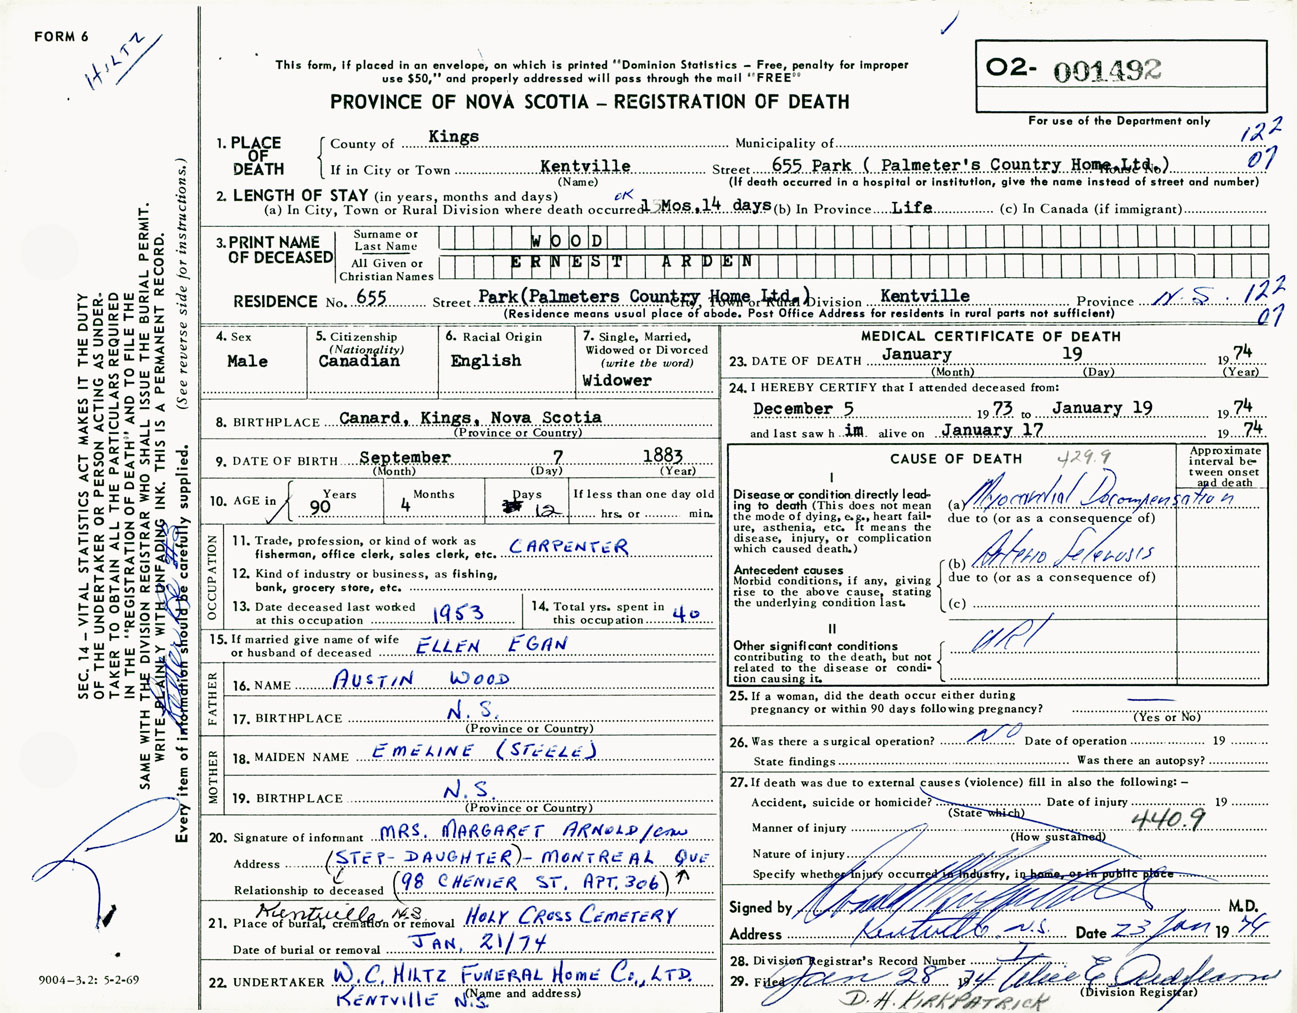 FORM 6
HILTZ
This form, if placed in an envelope, on which is printed "Dominion Statistics – Free, penalty for improper
use $50," and properly addressed will pass through the mail "FREE"
PROVINCE OF NOVA SCOTIA – REGISTRATION OF DEATH
02- 001492
For use of the Department only
122
07
1. PLACE OF DEATH
County of Kings Municipality of
If in City or Town Kentville Street 655 Park ( Palmeter's Country Home Ltd.) House No.
(Name) (If death occurred in a hospital or institution, give the name instead of street and number)
2. LENGTH OF STAY (in years, months and days) OK
(a) In City, Town or Rural Division where death occurred 1 Mos,14 days (b) In Province Life (c) In Canada (if immigrant)
3. PRINT NAME OF DECEASED
Surname or Last Name WOOD
All Given or Christian Names ERNEST ARDEN
RESIDENCE No. 655 Street Park(Palmeters Country Home Ltd.) City, Town or Rural Division Kentville Province N.S. 122
07
(Residence means usual place of abode. Post Office Address for residents in rural parts not sufficient)
4. Sex
Male
5. Citizenship
(Nationality)
Canadian
6. Racial Origin
English
7. Single, Married,
Widowed or Divorced
(write the word)
Widower
8. BIRTHPLACE Canard, Kings, Nova Scotia
(Province or Country)
9. DATE OF BIRTH September 7 1883
(Month) (Day) (Year)
10. AGE in Years Months Days If less than one day old
90 4 12 hrs. or min.
OCCUPATION
11. Trade, profession, or kind of work as
fisherman, office clerk, sales clerk, etc. CARPENTER
12. Kind of industry or business, as fishing,
bank, grocery store, etc.
13. Date deceased last worked
at this occupation 1953
14. Total yrs. spent in
this occupation 40
15. If married give name of wife
or husband of deceased ELLEN EGAN
FATHER
16. NAME AUSTIN WOOD
17. BIRTHPLACE N.S.
(Province or Country)
MOTHER
18. MAIDEN NAME EMELINE (STEELE)
19. BIRTHPLACE N.S.
(Province or Country)
20. Signature of informant MRS. MARGARET ARNOLD
Address (STEP-DAUGHTER) - MONTREAL QUE
Relationship to deceased (98 CHENIER ST. APT. 306)
Kentville N.S
21. Place of burial, cremation or removal HOLY CROSS CEMETERY
Date of burial or removal JAN. 21/74
22. UNDERTAKER W.C. HILTZ FUNERAL HOME CO., LTD.
KENTVILLE N.S. (Name and address)
MEDICAL CERTIFICATE OF DEATH
23. DATE OF DEATH January 19 1974
(Month) (Day) (Year)
24. I HEREBY CERTIFY that I attended deceased from:
December 5 1973 to January 19 1974
and last saw him alive on January 17 1974
CAUSE OF DEATH 429.9
Approximate
interval be-
tween onset
and death
I
Disease or condition directly lead-
ing to death (This does not mean
the mode of dying, e.g., heart fail-
ure, asthenia, etc. It means the
disease, injury, or complication
which caused death.)
(a) Myocardial Decompensation
due to (or as a consequence of)
Antecedent causes
Morbid conditions, if any, giving
rise to the above cause, stating
the underlying condition last.
(b) Arterio Sclerosis
due to (or as a consequence of)
(c)
II
Other significant conditions
contributing to the death, but not
related to the disease or condi-
tion causing it.
URI
25. If a woman, did the death occur either during
pregnancy or within 90 days following pregnancy?
(Yes or No)
26. Was there a surgical operation? NO Date of operation 19
State findings Was there an autopsy?
27. If death was due to external causes (violence) fill in also the following: –
Accident, suicide or homicide? Date of injury 19
(State which) 440.9
Manner of injury
(How sustained)
Nature of injury
Specify whether injury occurred in industry, in home, or in public place
Signed by M.D.
Address Kentville N.S. Date 23 Jan 1974
28. Division Registrar's Record Number
29. Filed Jan 28 1974
(Division Registrar)
D. H. KIRKPATRICK
SEC. 14 – VITAL STATISTICS ACT MAKES IT THE DUTY
OF THE UNDERTAKER OR PERSON ACTING AS UNDER-
TAKER TO OBTAIN ALL THE PARTICULARS REQUIRED
IN THE "REGISTRATION OF DEATH" AND TO FILE THE
SAME WITH THE DIVISION REGISTRAR WHO SHALL ISSUE THE BURIAL PERMIT.
WRITE PLAINLY WITH UNFADING INK. THIS IS A PERMANENT RECORD.
Every item of information should be carefully supplied. (See reverse side for instructions.)
9004-3.2: 5-2-69